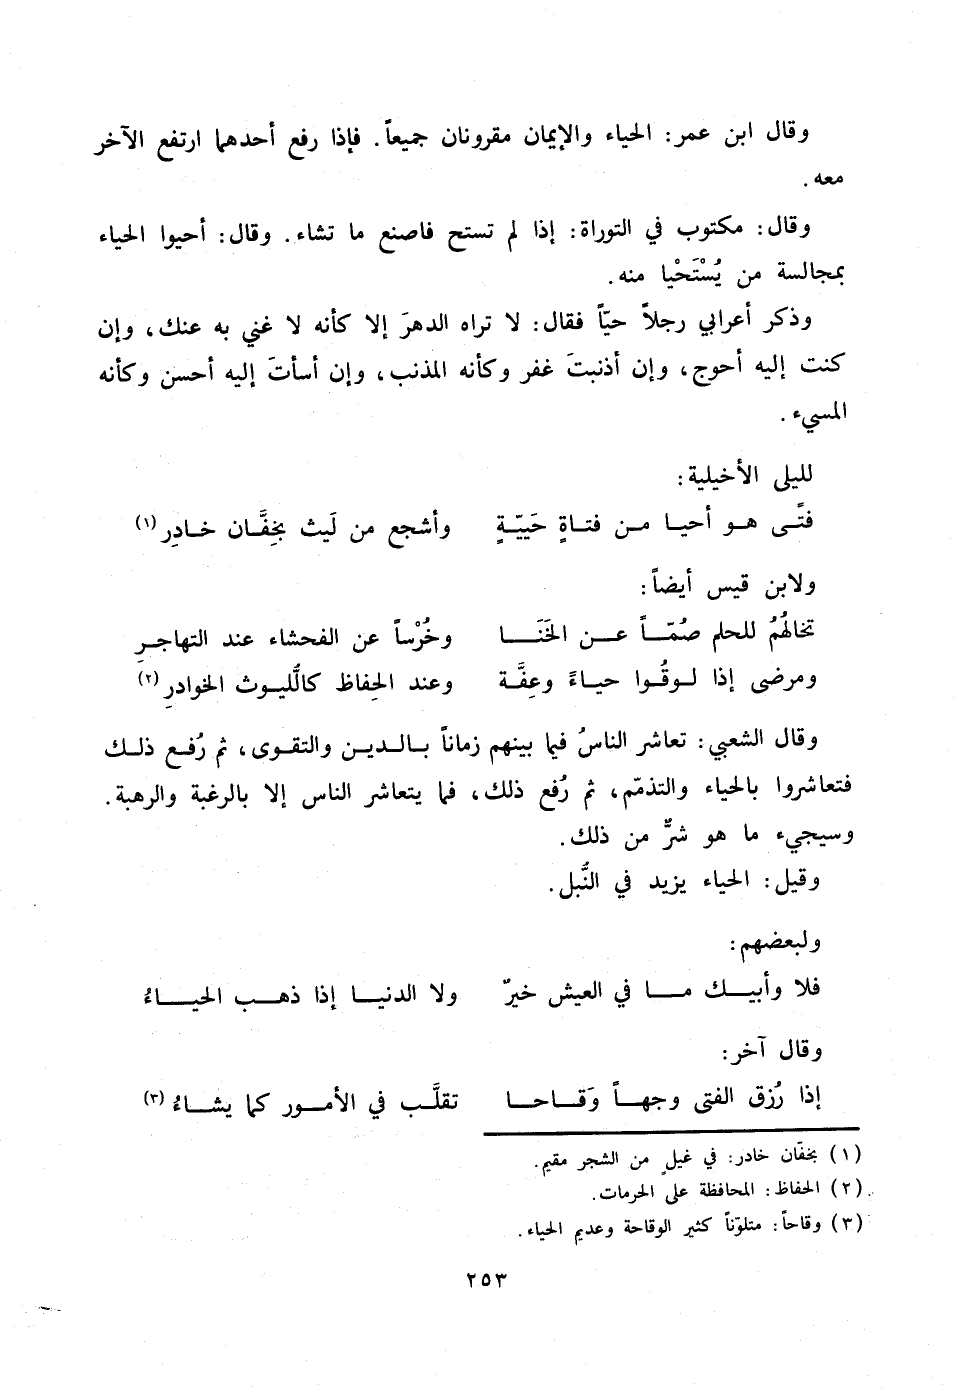 وقال ابن عمر: الحياء والإيمان مقرونان جميعاً. فإذا رفع أحدهما ارتفع الآخر
معه.
وقال: مكتوب في التوراة: إذا لم تستح فاصنع ما تشاء. وقال: أحيوا الحياء
بمجالسة من يُسْتَحْيا منه.
وذكر أعرابي رجلاً حيّاً فقال: لا تراه الدهرَ إلا كأنه لا غني به عنك، وإن
كنت إليه أحوج، وإن أذنبتَ غفر وكأنه المذنب، وإن أسأتَ إليه أحسن وكأنه
المسيء.
لليلى الأخيلية:
فتًى هو أحيا من فتاةٍ حَيِيّةٍ وأشجع من لَيث بخِفَّان خادِرِ (١)
ولابن قيس أيضاً:
تخالُهُم للحلم صُمّاً عن الخَنَا وخُرْساً عن الفحشاء عند التهاجرِ
ومرضى إذا لوقُوا حياءً وعِفَّة وعند الحِفاظ كاللُّيوث الخوادرِ (٢)
وقال الشعبي: تعاشر الناسُ فيما بينهم زماناً بالدين والتقوى، ثم رُفع ذلك
فتعاشروا بالحياء والتذمّم، ثم رُفع ذلك، فما يتعاشر الناس إلا بالرغبة والرهبة.
وسيجيء ما هو شرٌّ من ذلك.
وقيل: الحياء يزيد في النُّبل.
ولبعضهم:
فلا وأبيك ما في العيش خيرٌ ولا الدنيا إذا ذهب الحياءُ
وقال آخر:
إذا رُزق الفتى وجهاً وَقاحا تقلَّب في الأمور كما يشاءُ (٣)
(١) بخفّان خادر: في غيلٍ من الشجر مقيم.
(٢) الحفاظ: المحافظة على الحرمات.
(٣) وقاحاً: متلوّناً كثير الوقاحة وعديم الحياء.
٢٥٣